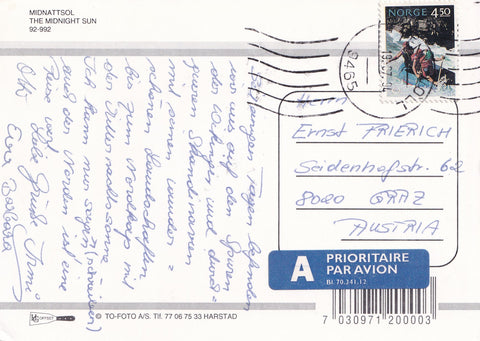 MIDNATTSOL
THE MIDNIGHT SUN
92-992
NORGE 4,50
9465
Seit einigen Tagen befinden
wir uns auf den Spuren
der Wikinger und durch=
queren Skandinavien
mit seinen wunder=
schönen Landschaften
bis zum Nordkap mit
der Mitternachtssonne.
Ich kann nur sagen (schreiben)
auch der Norden ist eine
Reise wert. Liebe Grüße
Eure Barbara
Herrn
Ernst FRIERICH
Seidenhofstr. 62
8020 GRAZ
AUSTRIA
A PRIORITAIRE
PAR AVION
Bl. 70.241.12
OFFSET © TO-FOTO A/S. Tlf. 77 06 75 33 HARSTAD
7 030971 200003